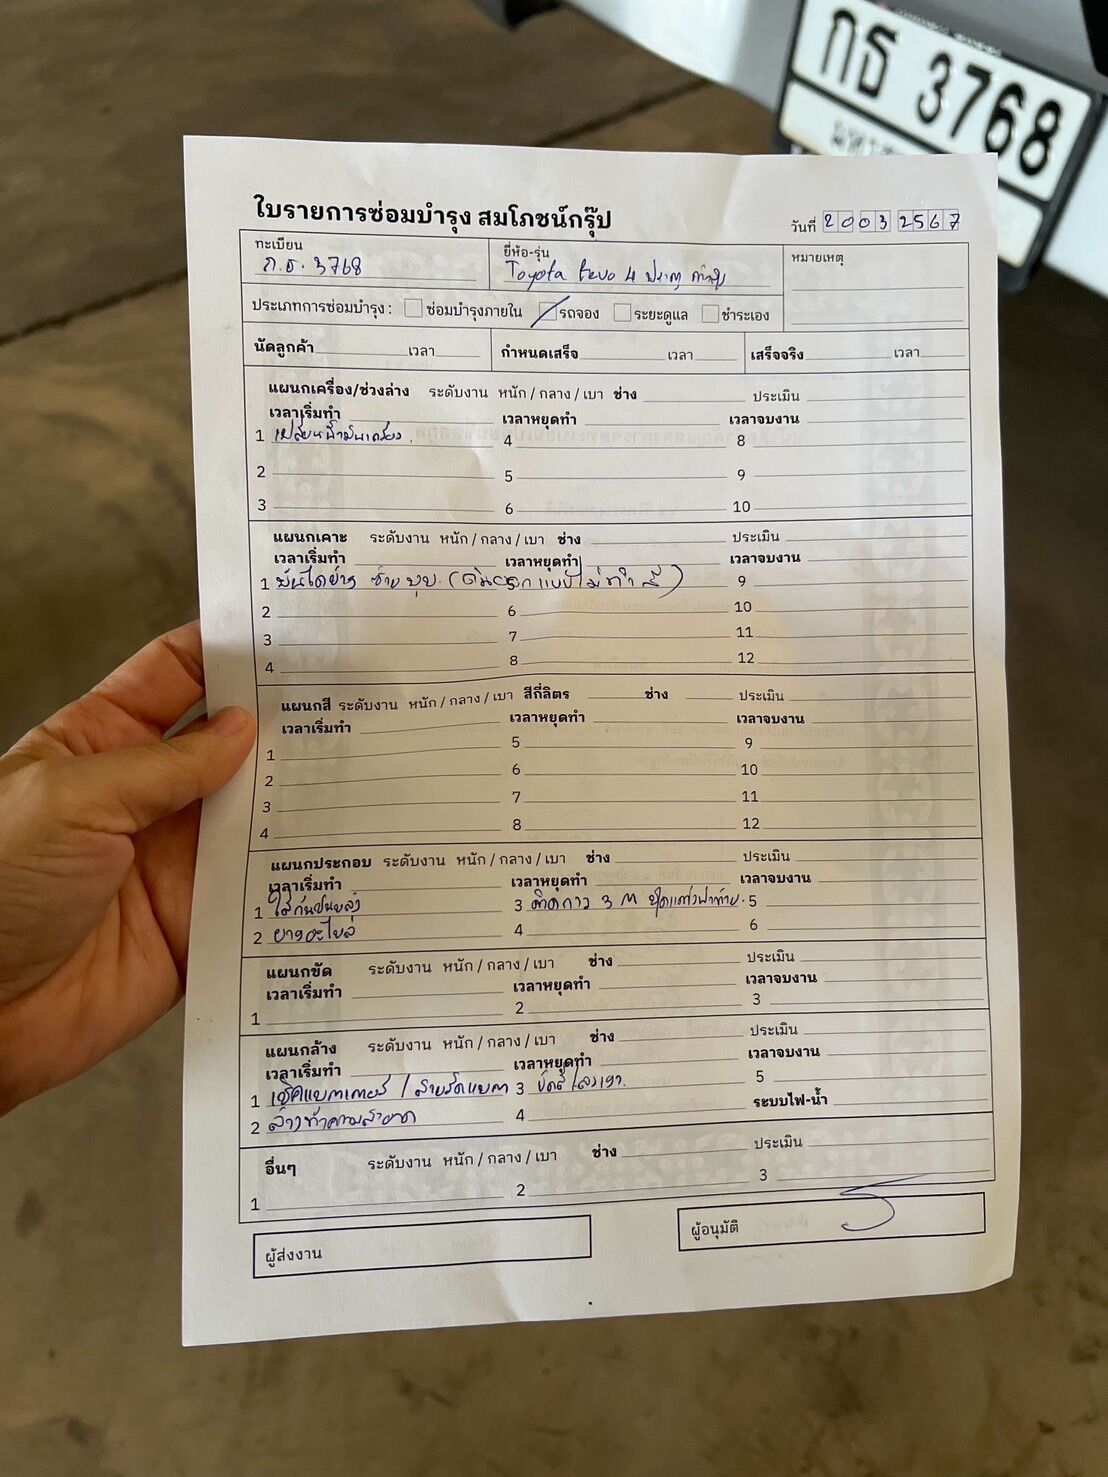 กธ 3768
ใบรายการซ่อมบำรุง สมโภชน์กรุ๊ป
วันที่ 20032567
ทะเบียน
ก.ธ. 3768
ยี่ห้อ-รุ่น
Toyota Revo 4 ประตู
หมายเหตุ
ประเภทการซ่อมบำรุง : ซ่อมบำรุงภายใน รถจอง ระยะดูแล ชำระเอง
นัดลูกค้า เวลา กำหนดเสร็จ เวลา เสร็จจริง เวลา
แผนกเครื่อง/ช่วงล่าง ระดับงาน หนัก / กลาง / เบา ช่าง ประเมิน
เวลาเริ่มทำ เวลาหยุดทำ เวลาจบงาน
1 เปลี่ยนน้ำมันเครื่อง. 4 8
2 5 9
3 6 10
แผนกเคาะ ระดับงาน หนัก / กลาง / เบา ช่าง ประเมิน
เวลาเริ่มทำ เวลาหยุดทำ เวลาจบงาน
1 บันไดข้าง ซ้าย บุบ. (ดันออกแบบไม่ทำสี) 5 9
2 6 10
3 7 11
4 8 12
แผนกสี ระดับงาน หนัก / กลาง / เบา สีกี่ลิตร ช่าง ประเมิน
เวลาเริ่มทำ เวลาหยุดทำ เวลาจบงาน
1 5 9
2 6 10
3 7 11
4 8 12
แผนกประกอบ ระดับงาน หนัก / กลาง / เบา ช่าง ประเมิน
เวลาเริ่มทำ เวลาหยุดทำ เวลาจบงาน
1 3 ติดกาว 3 M 5
2 ยางอะไหล่ 4 6
แผนกขัด ระดับงาน หนัก / กลาง / เบา ช่าง ประเมิน
เวลาเริ่มทำ เวลาหยุดทำ เวลาจบงาน
1 2 3
แผนกล้าง ระดับงาน หนัก / กลาง / เบา ช่าง ประเมิน
เวลาเริ่มทำ เวลาหยุดทำ เวลาจบงาน
1 เช็คแบตเตอรี่ / สายรัดแบต 3 ขัดสี / ลงเงา. 5
2 ล้างทำความสะอาด 4 ระบบไฟ-น้ำ
อื่นๆ ระดับงาน หนัก / กลาง / เบา ช่าง ประเมิน
1 2 3
ผู้ส่งงาน
ผู้อนุมัติ